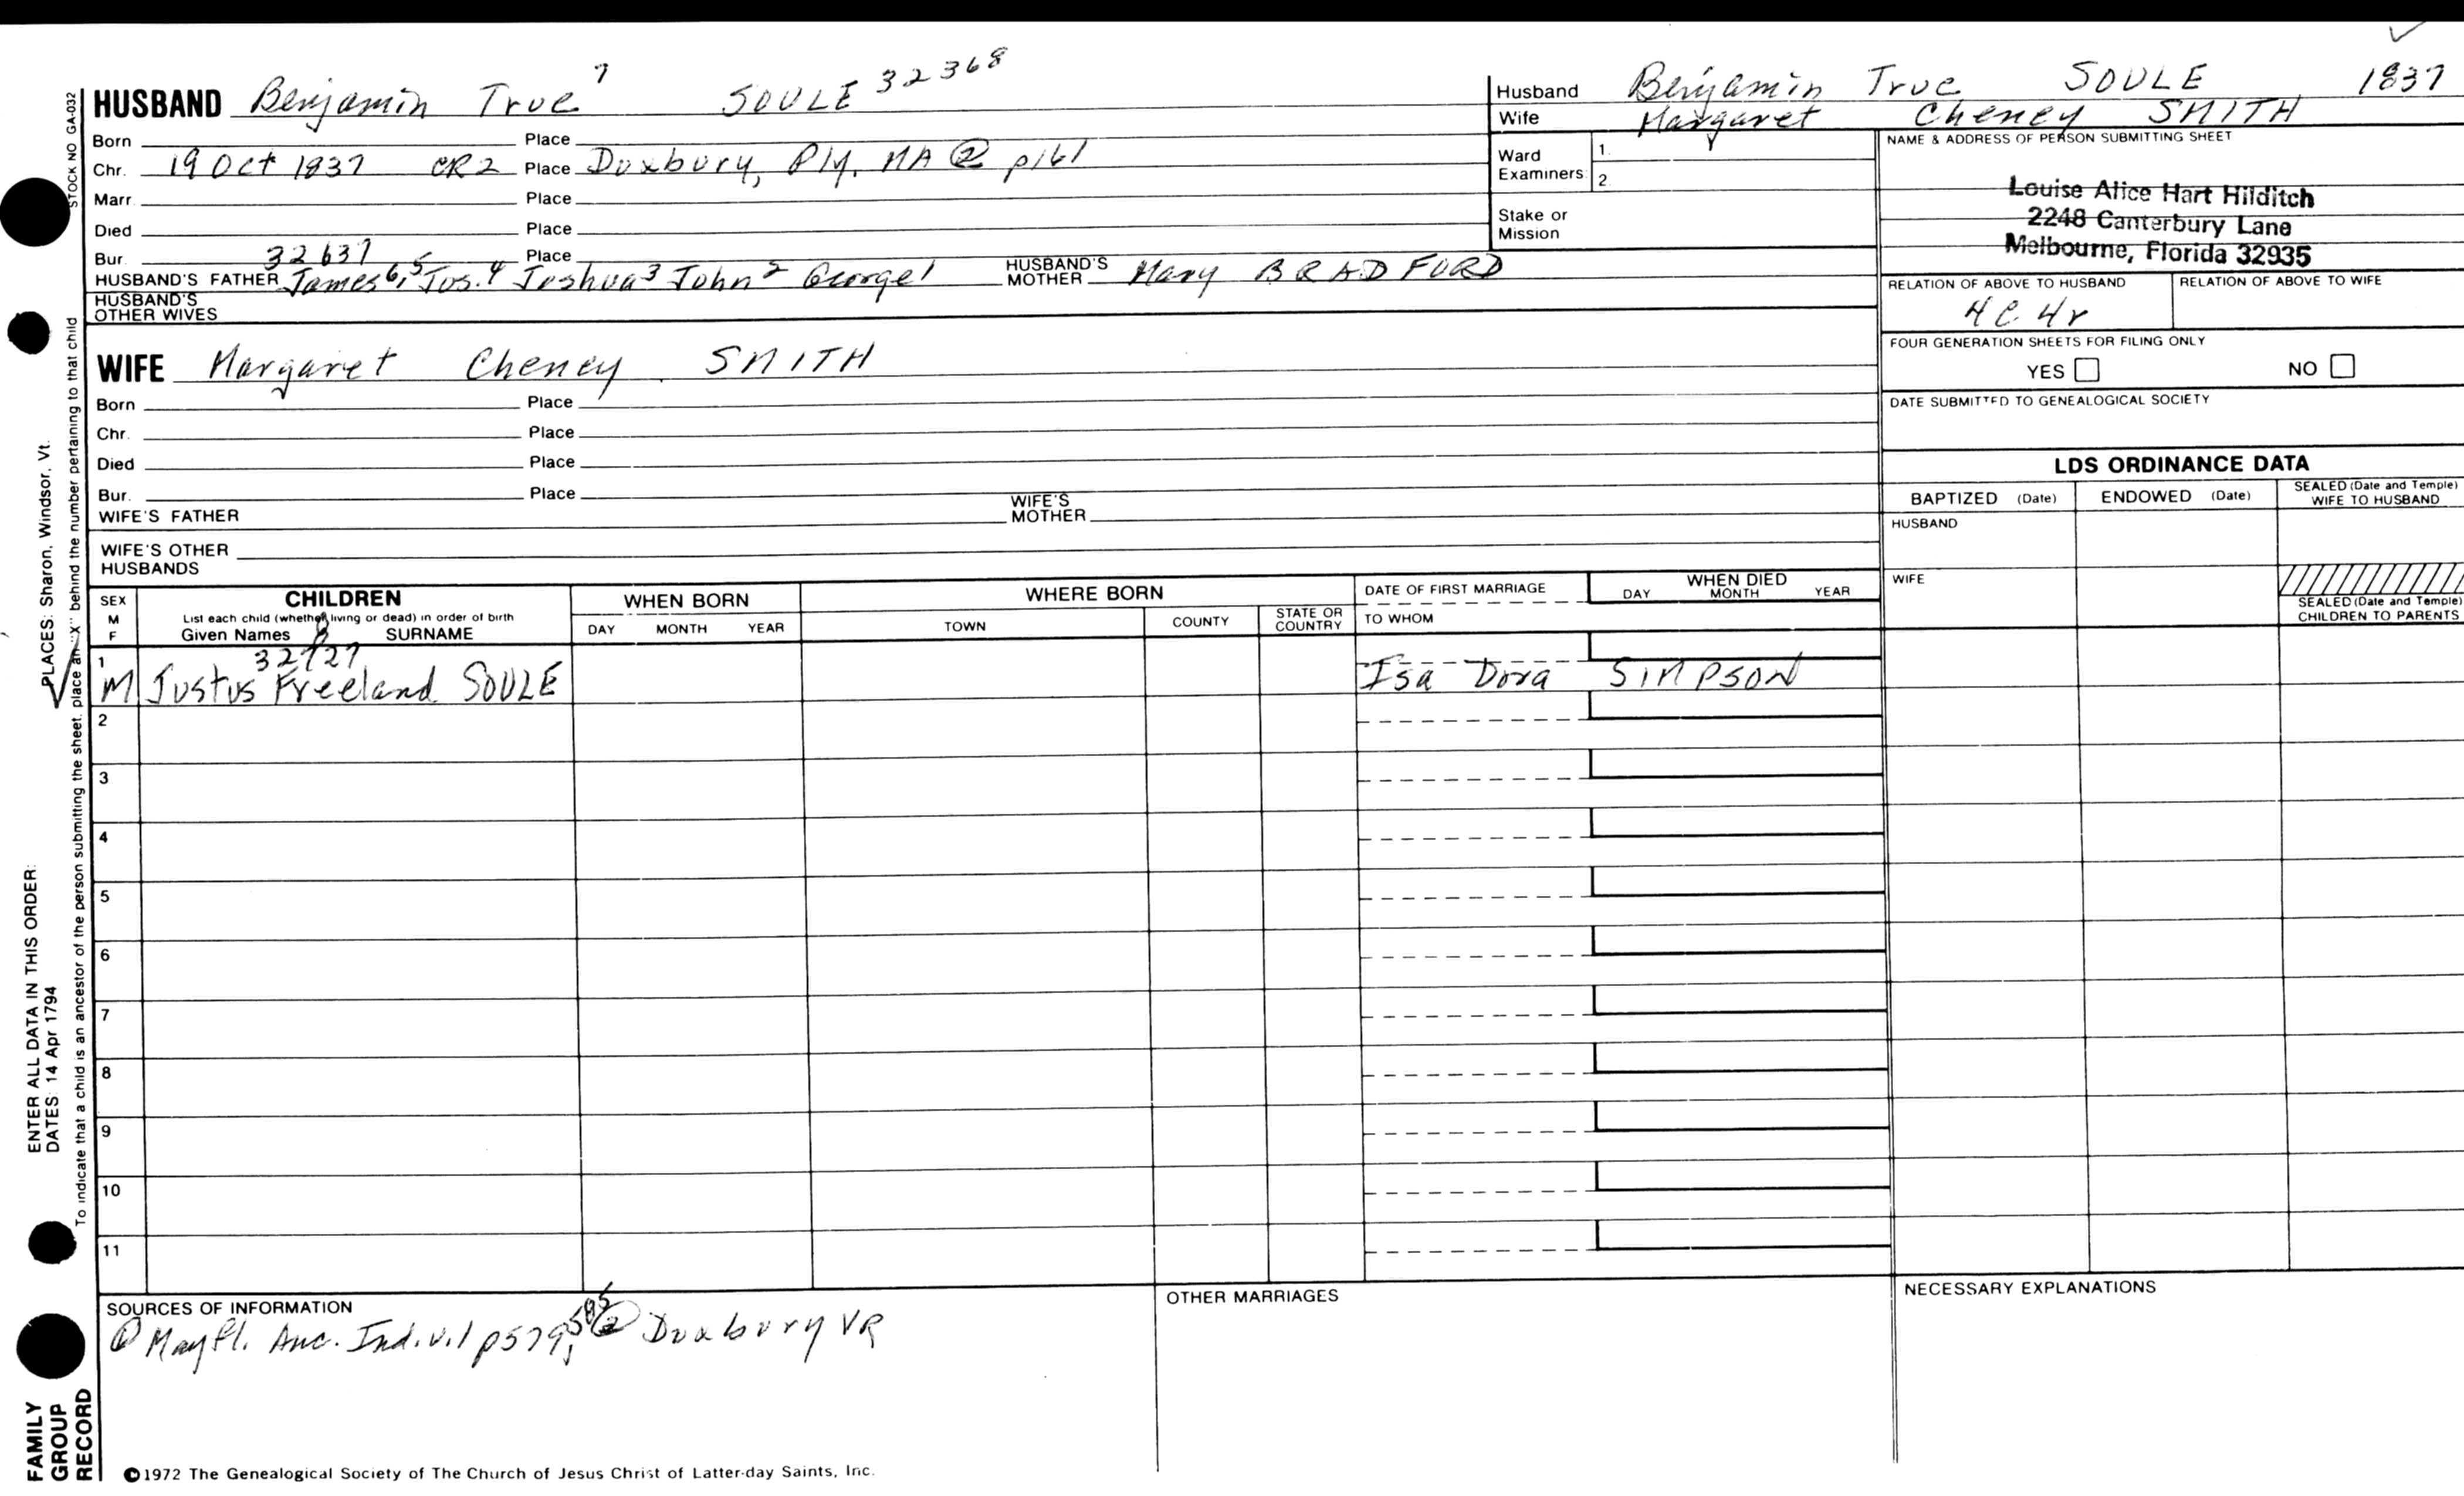 HUSBAND Benjamin True 7 SOULE 32368
Born Place
Chr. 19 Oct 1837 CR2 Place Duxbury, Ply, MA ② p161
Marr. Place
Died Place
Bur. 32637 Place
HUSBAND'S FATHER James 6, 5 Jos. 4 Joshua 3 John 2 George 1 HUSBAND'S MOTHER Mary BRADFORD
HUSBAND'S OTHER WIVES
Husband Benjamin True SOULE 1837
Wife Margaret Cheney SMITH
Ward Examiners 1.
2.
Stake or Mission
NAME & ADDRESS OF PERSON SUBMITTING SHEET
Louise Alice Hart Hilditch
2248 Canterbury Lane
Melbourne, Florida 32935
RELATION OF ABOVE TO HUSBAND RELATION OF ABOVE TO WIFE
4C 4r
FOUR GENERATION SHEETS FOR FILING ONLY
YES NO
DATE SUBMITTED TO GENEALOGICAL SOCIETY
WIFE Margaret Cheney SMITH
Born Place
Chr. Place
Died Place
Bur. Place
WIFE'S FATHER WIFE'S MOTHER
WIFE'S OTHER HUSBANDS
LDS ORDINANCE DATA
BAPTIZED (Date) ENDOWED (Date) SEALED (Date and Temple) WIFE TO HUSBAND
HUSBAND
WIFE
SEALED (Date and Temple) CHILDREN TO PARENTS
SEX M F
CHILDREN
List each child (whether living or dead) in order of birth
Given Names SURNAME
WHEN BORN
DAY MONTH YEAR
WHERE BORN
TOWN COUNTY STATE OR COUNTRY
DATE OF FIRST MARRIAGE
TO WHOM
WHEN DIED
DAY MONTH YEAR
8
32727
1 M Justus Freeland SOULE Isa Dora SIMPSON
2
3
4
5
6
7
8
9
10
11
SOURCES OF INFORMATION
① Mayfl. Anc. Ind. v.1 p579, 585 ② Duxbury VR
OTHER MARRIAGES
NECESSARY EXPLANATIONS
©1972 The Genealogical Society of The Church of Jesus Christ of Latter-day Saints, Inc.
STOCK NO GA-032
To indicate that a child is an ancestor of the person submitting the sheet, place an "X" behind the number pertaining to that child
ENTER ALL DATA IN THIS ORDER:
DATES: 14 Apr 1794 PLACES: Sharon, Windsor, Vt.
FAMILY
GROUP
RECORD